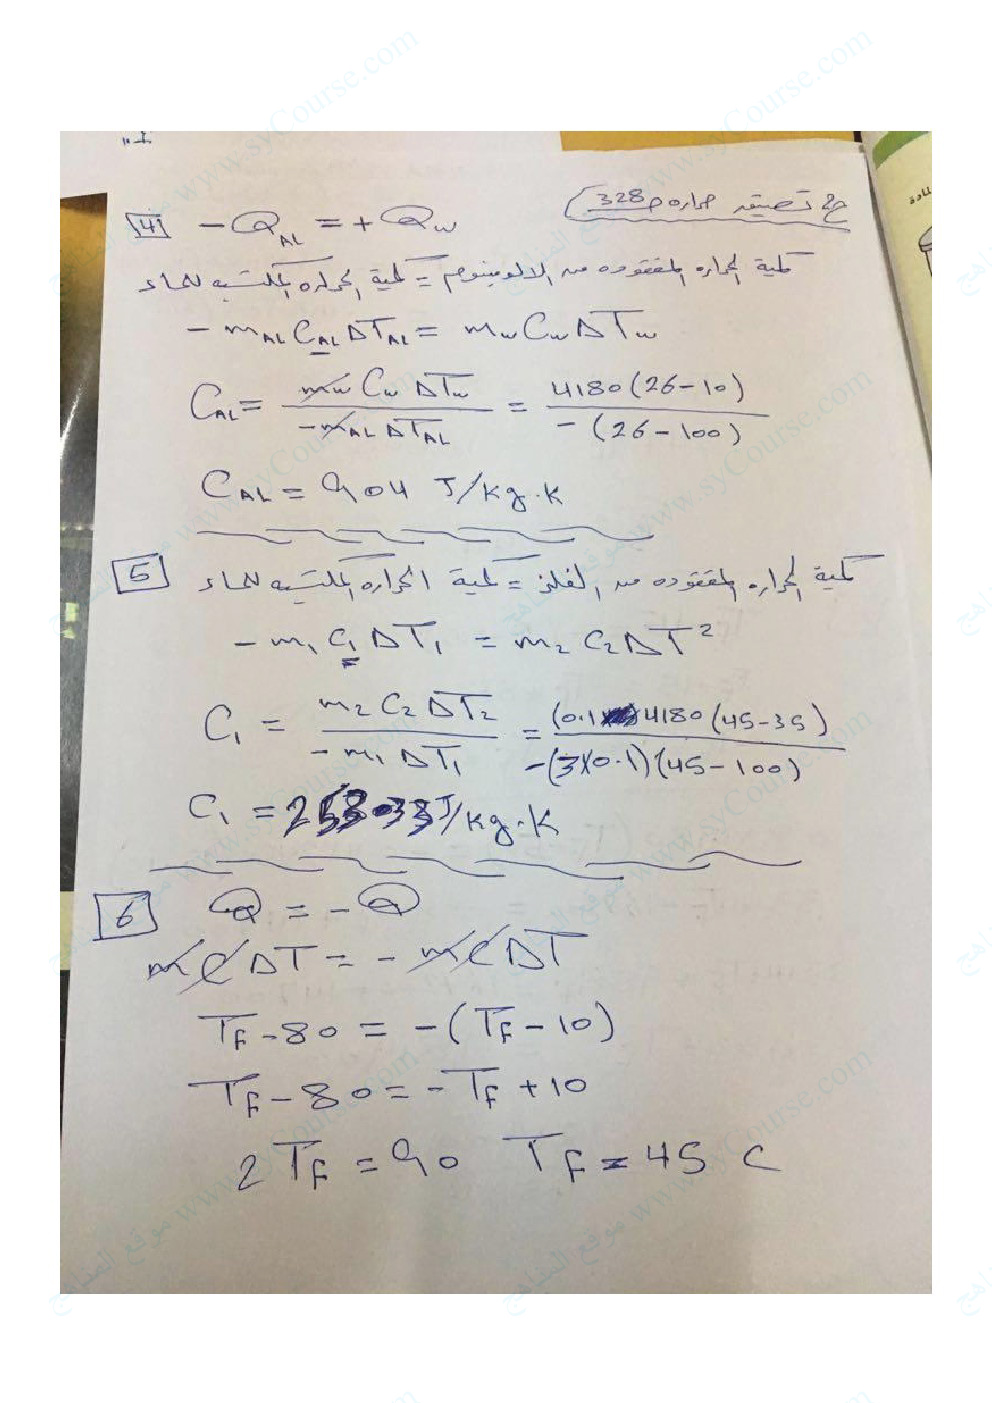 حل تصنيف حراره ص 328
[4] - Q_AL = + Q_w
كمية الحراره المفقوده من الالومينيوم = كمية الحراره المكتسبه للماء
- m_AL C_AL ΔT_AL = m_w C_w ΔT_w
C_AL = m_w C_w ΔT_w / - m_AL ΔT_AL = 4180 (26-10) / - (26-100)
C_AL = 904 J/kg.K
[5] كمية الحراره المفقوده من الفلز = كمية الحراره المكتسبه للماء
- m₁ C₁ ΔT₁ = m₂ C₂ ΔT²
C₁ = m₂ C₂ ΔT₂ / - m₁ ΔT₁ = (0.1) 4180 (45-35) / -(3)(0.1)(45-100)
C₁ = 253.33 J/kg.K
[6] Q = - Q
m C ΔT = - m C ΔT
T_F - 80 = - (T_F - 10)
T_F - 80 = - T_F + 10
2 T_F = 90 T_F = 45 C
موقع المناهج www.syCourse.com